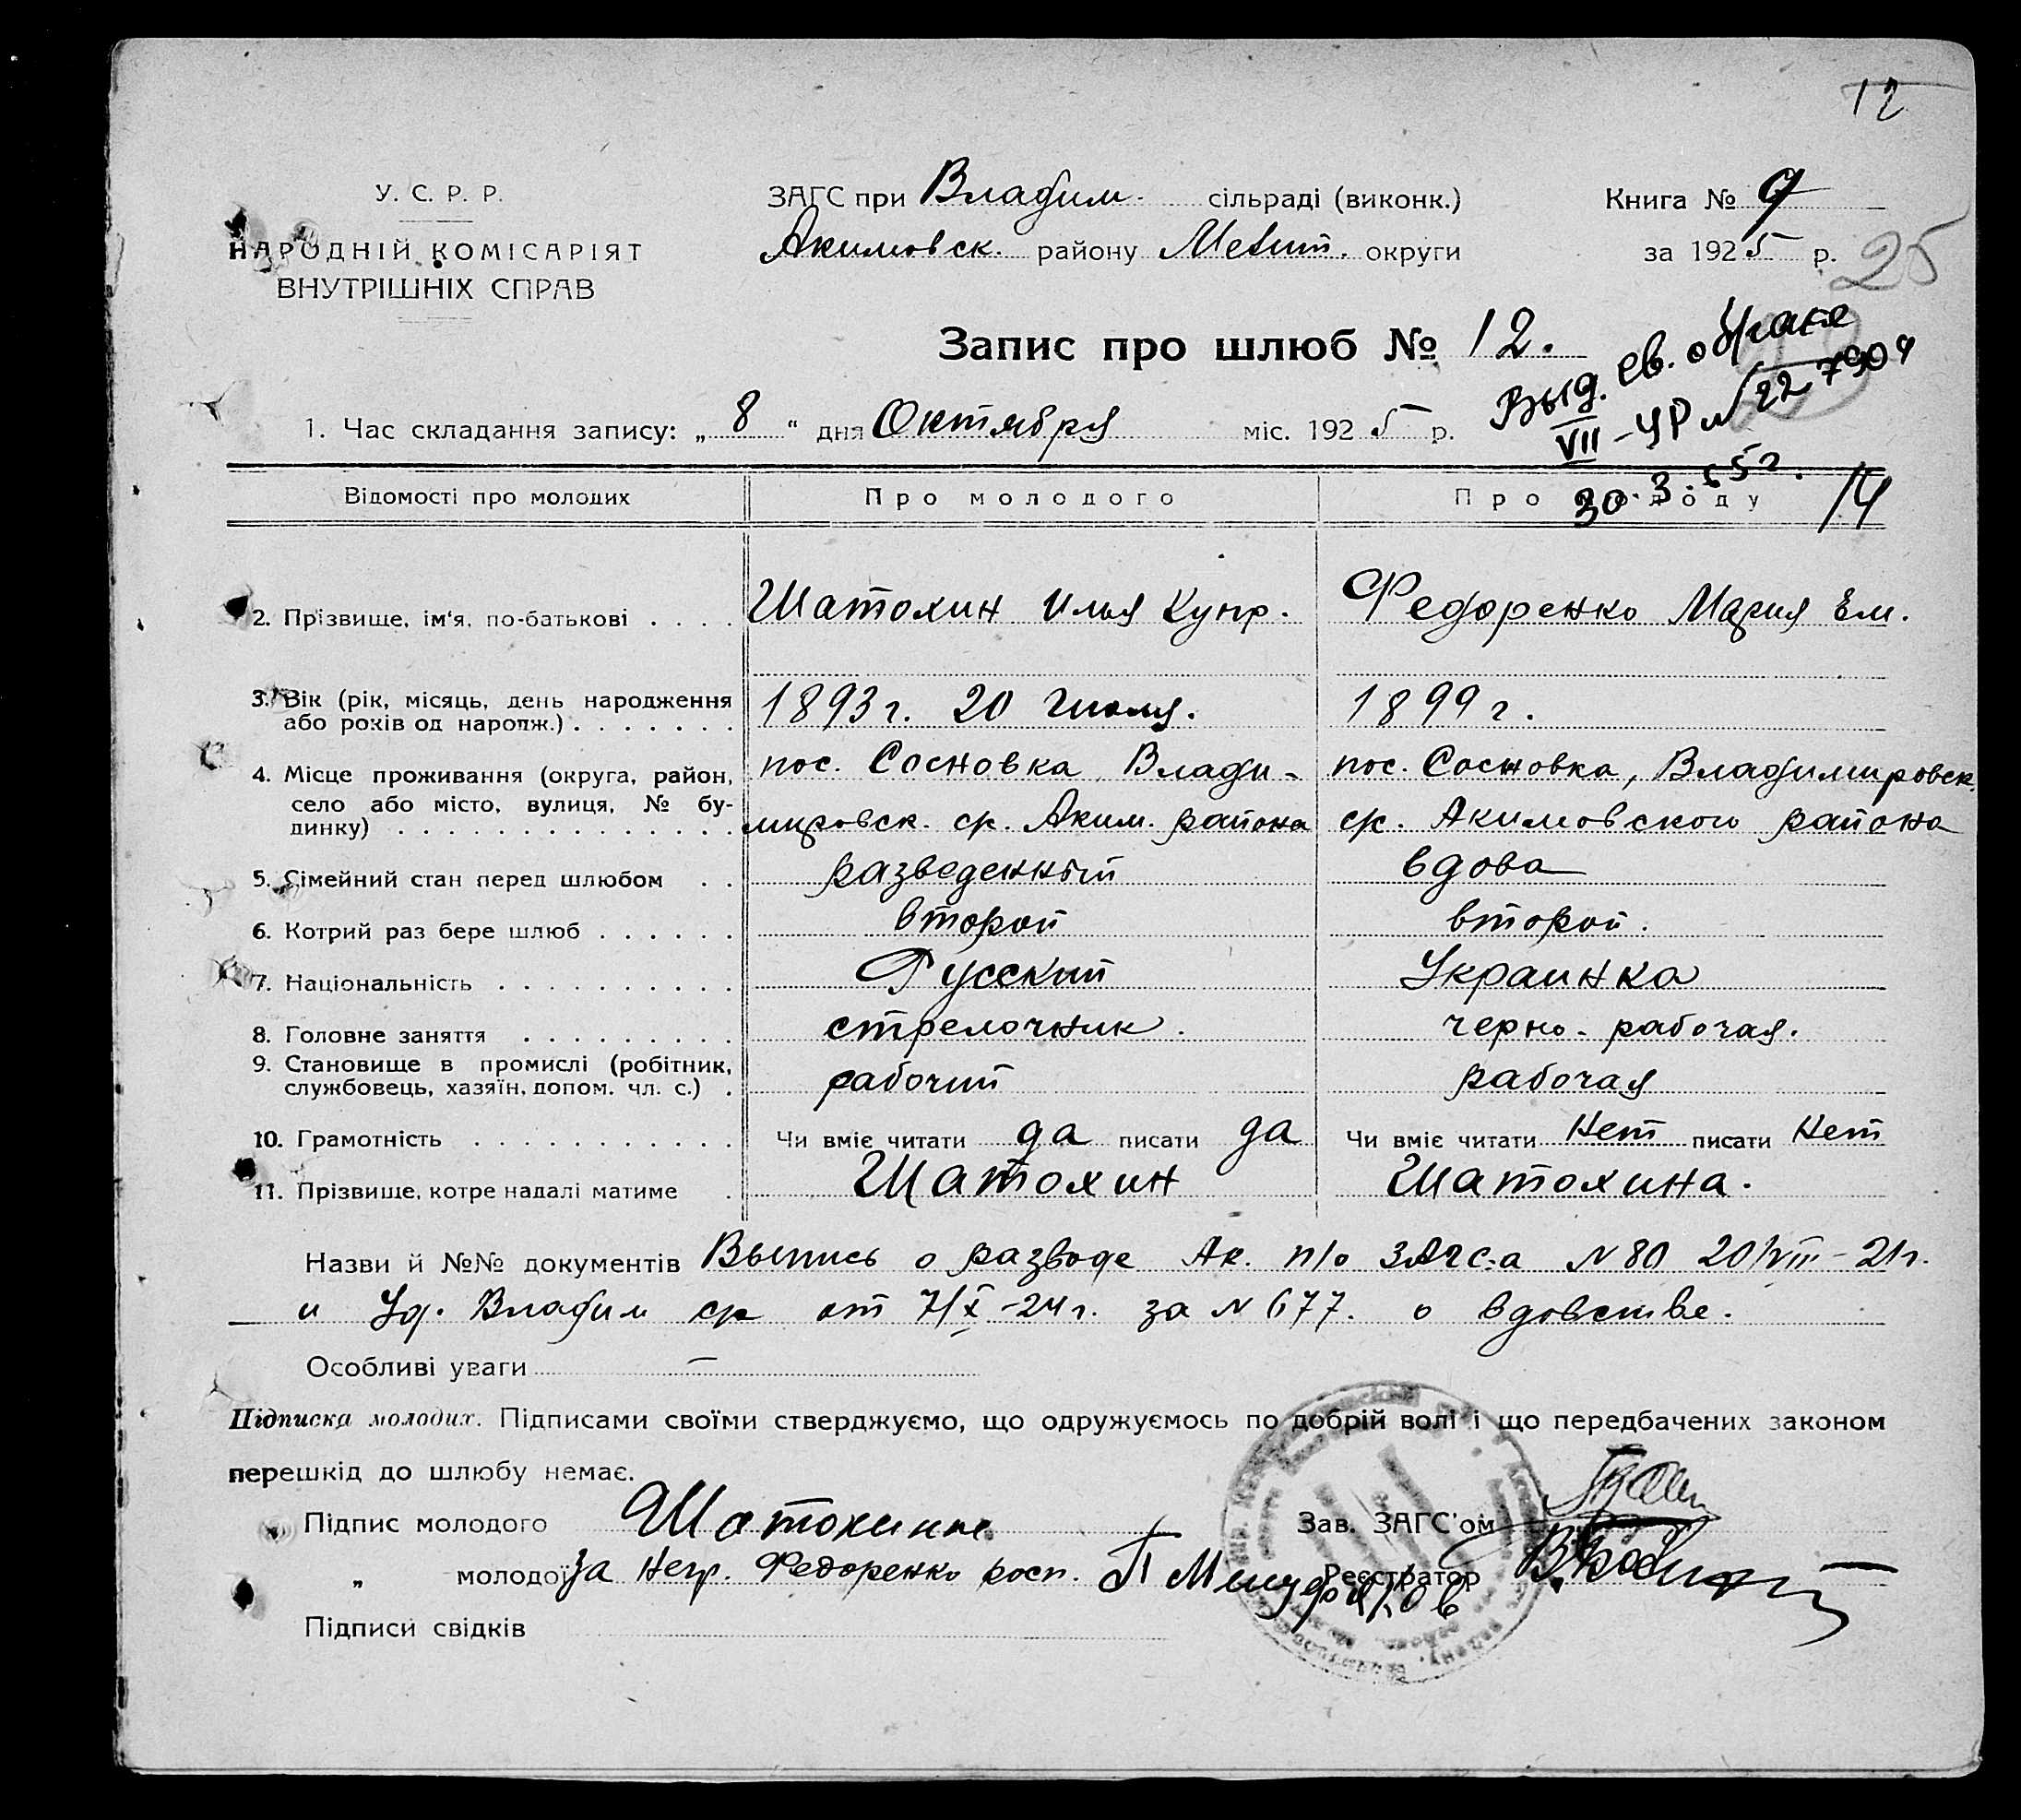 12
У. С. Р. Р.
НАРОДНІЙ КОМІСАРІЯТ
ВНУТРІШНІХ СПРАВ
ЗАГС при Владим. сільраді (виконк.)
Акимовск. району Мелит. округи
Книга № 9
за 1925 р.
25
Запис про шлюб № 12.
Выд. св. о браке
VII-УР № 227904
30.3.65г.
14
1. Час складання запису: „8“ дня Октября міс. 1925 р.
Відомості про молодих Про молодого Про молоду
2. Прізвище, ім'я, по-батькові . . . . Шатохин Илья Купр. Федоренко Мария Ем.
3. Вік (рік, місяць, день народження
або років од народж.) . . . . . . . 1893 г. 20 Июля. 1899 г.
4. Місце проживання (округа, район, пос. Сосновка Влади- пос. Сосновка, Владимировск.
село або місто, вулиця, № бу-
динку) . . . . . . . . . . . . . . мировск. ср. Аким. района ср. Акимовского района
5. Сімейний стан перед шлюбом . . разведенный вдова
6. Котрий раз бере шлюб . . . . . . второй второй.
7. Національність . . . . . . . . . . Русский Украинка
8. Головне заняття . . . . . . . . . стрелочник. черно-рабочая.
9. Становище в промислі (робітник,
службовець, хазяїн, допом. чл. с.) . рабочий рабочая
10. Грамотність . . . . . . . . . . . Чи вміє читати да писати да Чи вміє читати нет писати нет
11. Прізвище, котре надалі матиме . Шатохин Шатохина.
Назви й №№ документів Выпись о разводе Ак. п/о ЗАГС-а N 80 20/VIII-21г.
и Уд. Владим ср от 7/X-24 г. за N 677. о вдовстве.
Особливі уваги —
Підписка молодих. Підписами своїми стверджуємо, що одружуємось по добрій волі і що передбачених законом
перешкід до шлюбу немає.
Підпис молодого Шатохин
Зав. ЗАГС'ом
„ молодої За негр. Федоренко росп.
Реєстратор
Підписи свідків